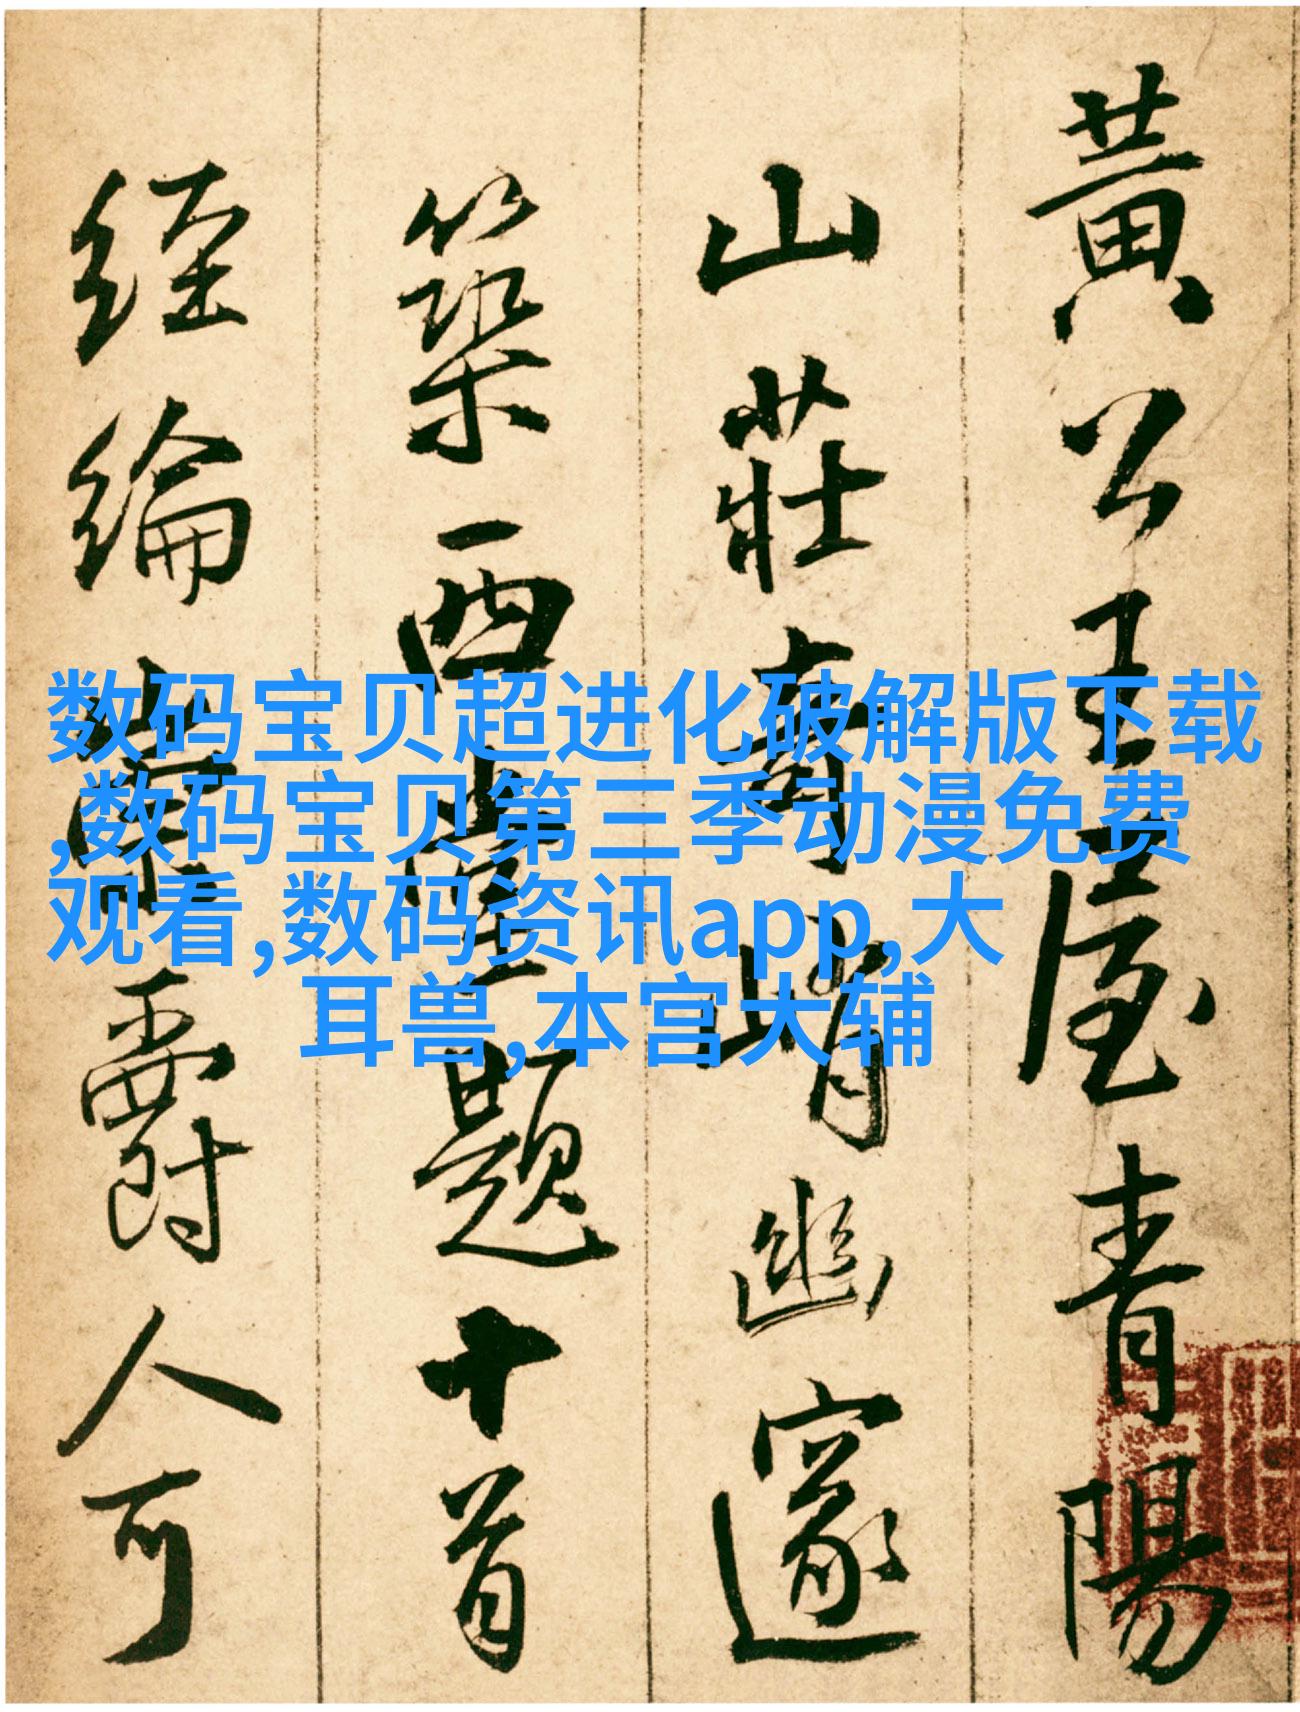 黃公王屋青陽
山莊奇峭幽邃
築西堂題十首
經綸榮爵人可
数码宝贝超进化破解版下载
,数码宝贝第三季动漫免费
观看,数码资讯app,大
耳兽,本宫大辅